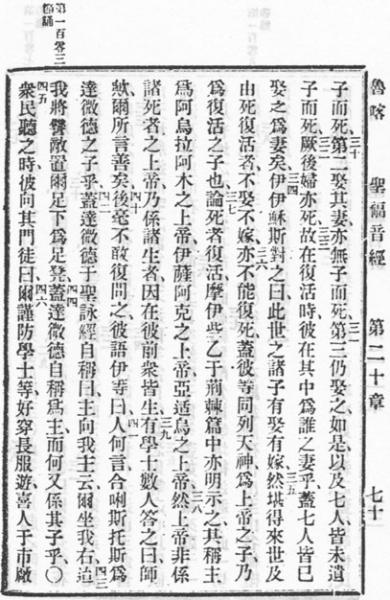 魯喀 聖福音經 第二十章 七十
子而死、三十第二娶其妻亦無子而死、三一第三仍娶之、如是以及七人皆未遺
子而死、三二厥後婦亦死、三三故在復活時、彼在其中為誰之妻乎、蓋七人皆已
娶之爲妻矣、三四伊伊穌斯對之曰、此世之諸子有娶有嫁、三五然堪得來世及
由死復活者、不娶不嫁、三六亦不能復死、蓋彼等同列天神、爲上帝之子、乃
為復活之子也、三七論死者復活、摩伊些乙于荆棘篇中亦明示之、其稱主
爲阿烏拉阿木之上帝、伊薩阿克之上帝、亞适烏之上帝、三八然上帝非係
諸死者之上帝、乃係諸生者、因在彼前衆皆生、三九有學士數人答之曰、師
歟、爾所言善矣、四十後毫不敢復問之、四一彼語伊等曰、人何言合唎斯托斯爲
達微德之子乎、四二蓋達微德于聖詠經自稱曰、主向我主云、爾坐我右、四三迨
我將讐敵置爾足下爲足凳、四四蓋達微德自稱爲主、而何又係其子乎、〇
四五衆民聽之時、彼向其門徒曰、四六爾謹防學士等、好穿長服遊、喜人于市厰
第一百零三